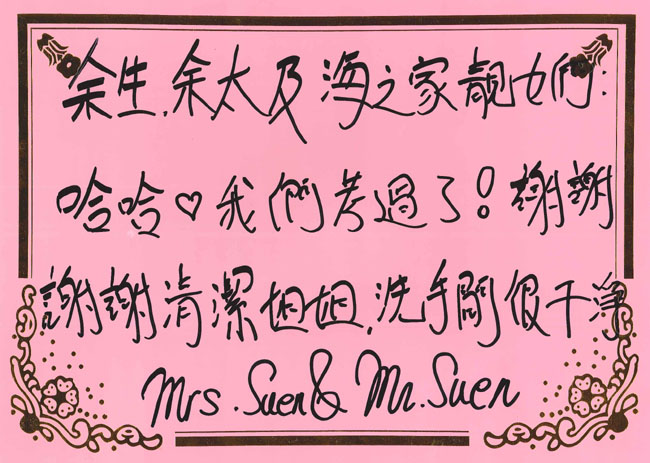 余生,余太及海之家靚女們:
哈哈♡我們考過了!謝謝
謝謝清潔姐姐,洗手間很干淨
Mrs. Suen & Mr. Suen